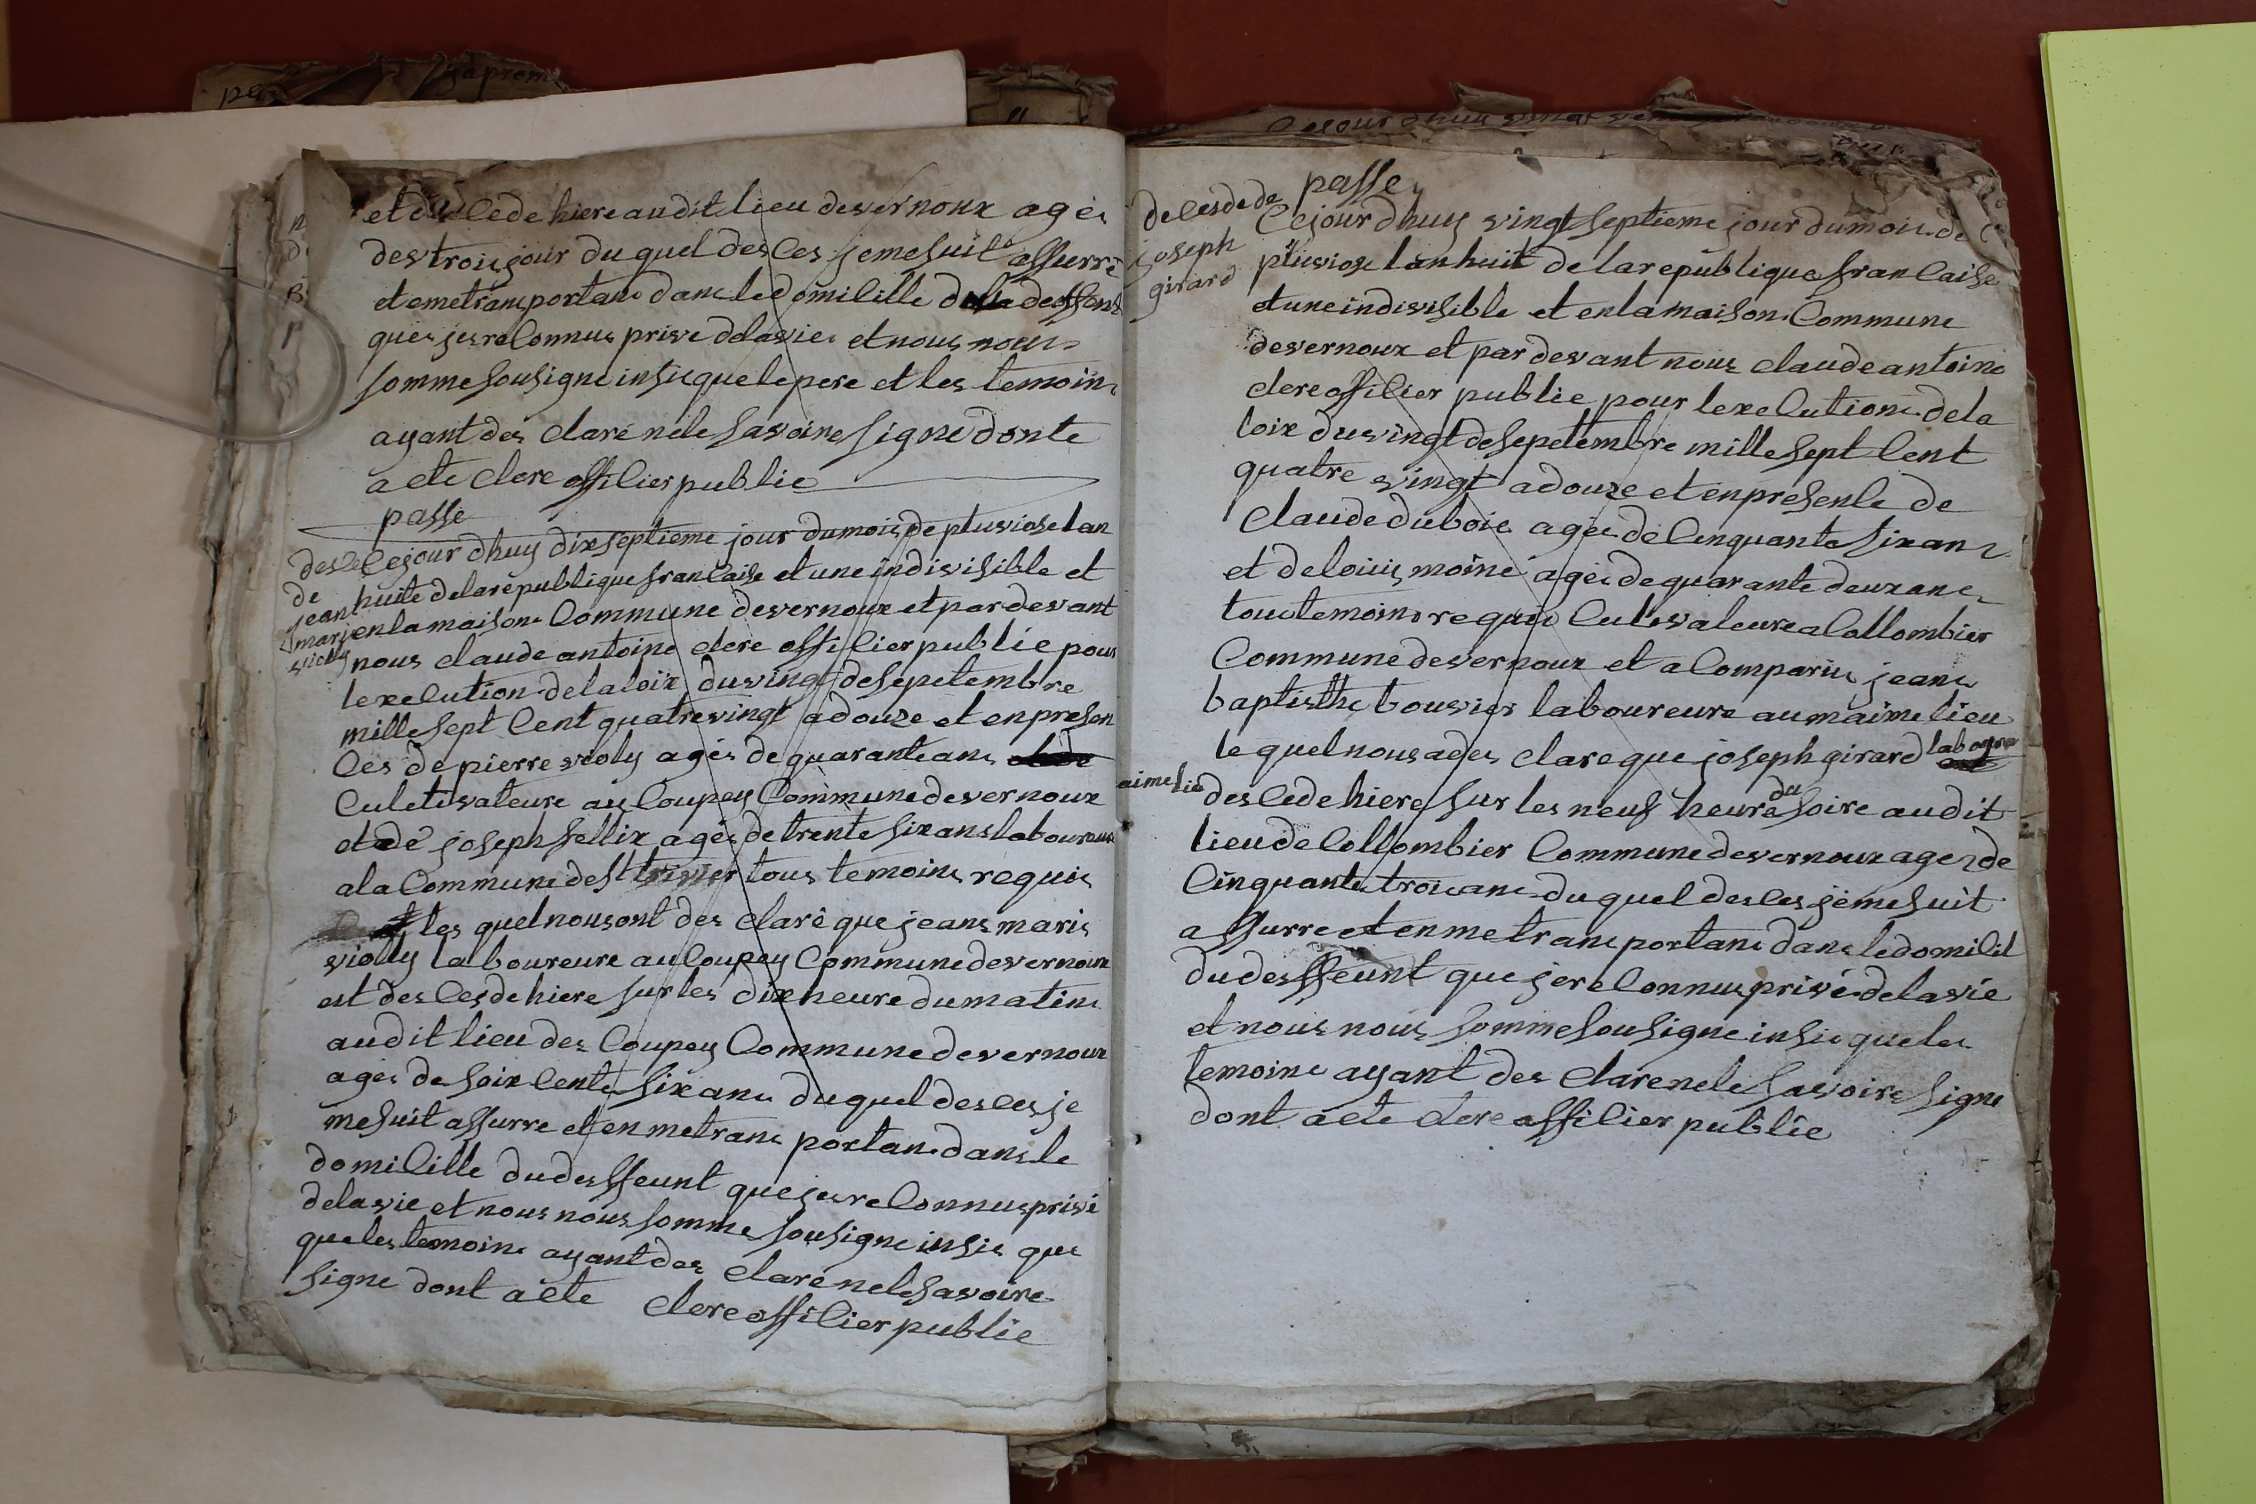 et desCede hiere audit lieu devernoux agés
des trois jour du quel desCes je me suit assurre
et emetransportans dans ledomiCille
ques jes reConnus prive delavies et nous nous
somme sousigne insi que le pere et les temoins
ayant des claré nele savoire signe donte
acte clere offiCier public
passe
Cejour dhuy dixseptieme jour dumois de pluviose lan
huite delarepublique franCaise et une indivisible et
enlamaison Commune devernoux et par devant
nous claude antoine clere offiCier public pour
lexeCution delaloix du vingt desepetembre
mille sept Cent quatrevingt adouze et enpresen
Ces de pierre violy agés de quarante ans
Culetivateure au Coupey Commune devernoux
et de joseph fellix agés de trente six ans laboureure
ala Commune de st trivier tous temoins requis
les quel nous ont des claré que jeans maris
violly laboureure au Coupey Commune devernoux
est desCes de hiere sur les dix heure dumatin
audit lieu des Coupey Commune devernoux
agés de soix Cente six ans duquel desCes je
mesuit assurre et en metrans portans dans le
domiCille dudesffeunt que jes reConnus privé
delavie et nous nous somme sousigne insis que
que les temoins ayant des claré nele savoire
signe dont acte clere offiCier public
desCe
de
jean
marj
violly
passe
deCesdede
joseph
girard
Cejour dhuy vingt septieme jour dumois de
pluviose lan huit de larepublique franCaise
et une indivisible et enlamaison Commune
devernoux et par devant nous claude antoine
clere offiCier public pour lexeCution dela
loix du vingt desepetembre mille sept Cent
quatre vingt adouze et en presenCe de
Claude dubois agés de Cinquante six ans
et delouis moine agés de quarante deux ans
tous temoins requis Culevateure a Collombier
Commune devernoux et a Comparus jeans
baptisthe bouvier laboureure au maime lieu
le quel nous a des clare que joseph girard laboure
aime lieu
desCede hiere sur les neuf heure du soire audit
lieu de Collombier Commune devernoux agés de
Cinquante trois ans duquel desCes je me suit
assurre et en metrans portans dans le domiCil
dudesffeunt que je reConnus privé delavie
et nous nous somme sousigne insis que les
temoins ayant des clare nele savoire signe
dont acte clere offiCier public